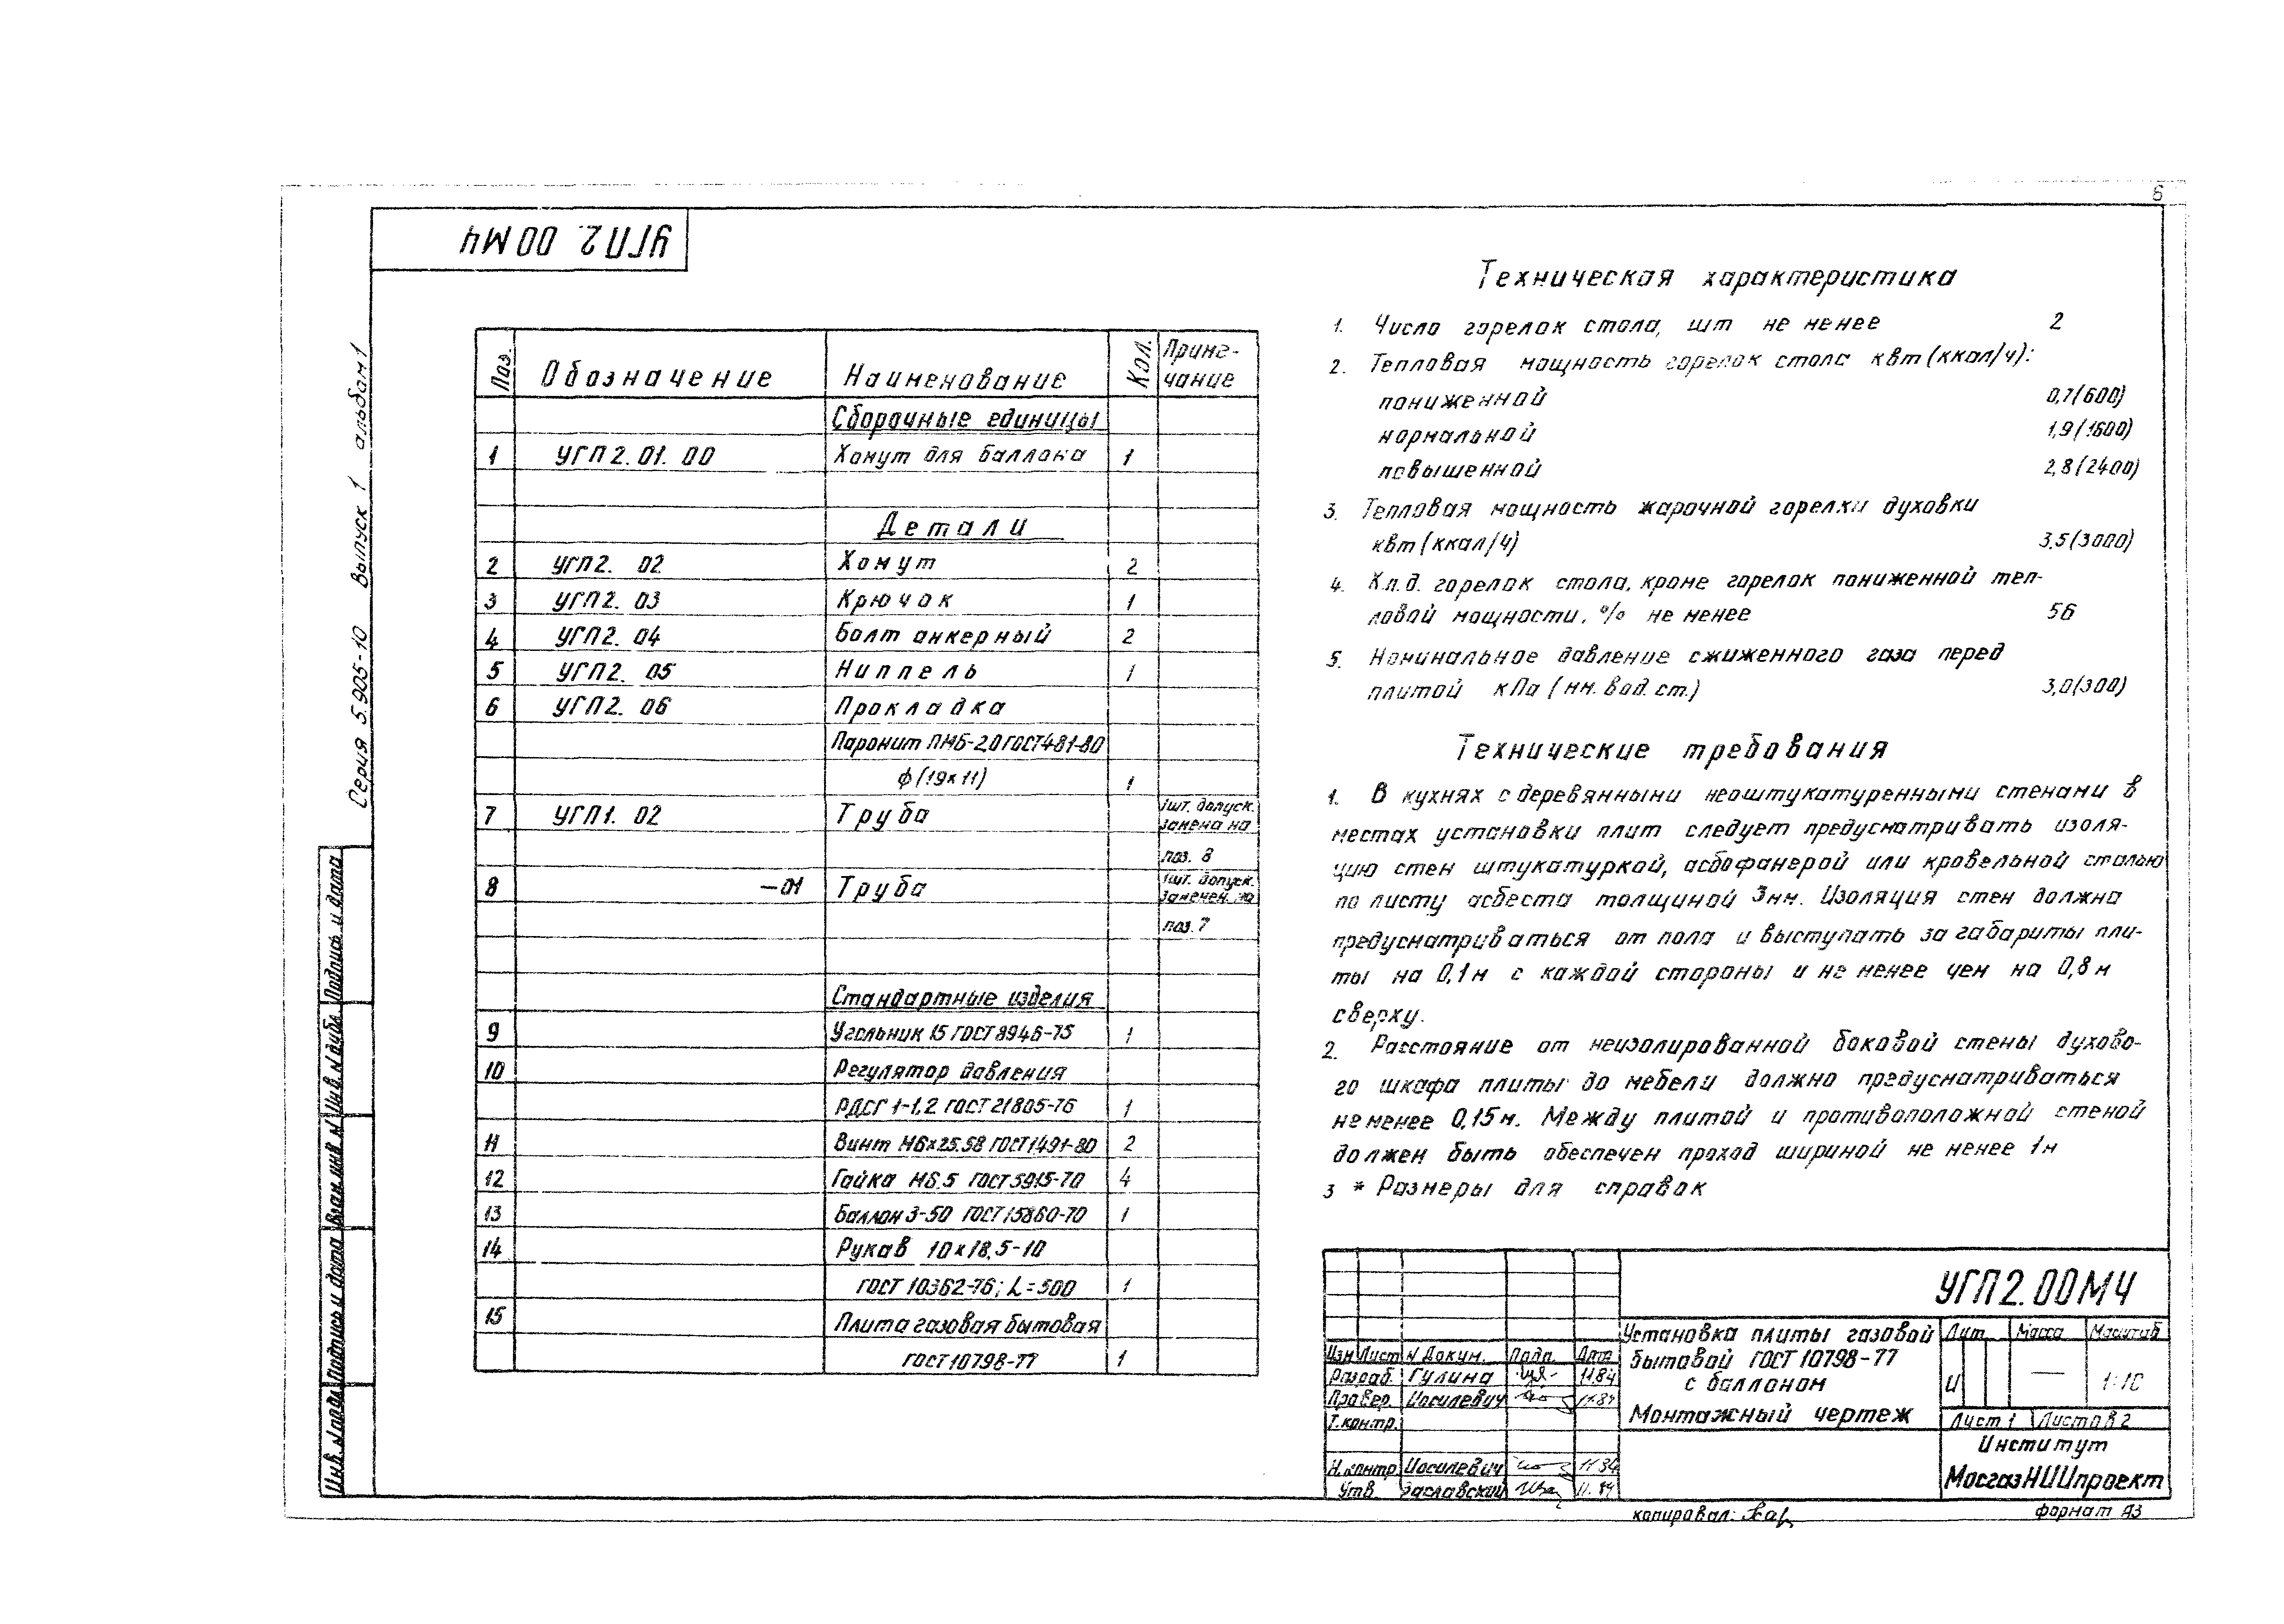 6
УГП2. 00МЧ
Серия 5.905-10 Выпуск 1 альбом 1
Поз. Обозначение Наименование Кол. Примечание
Сборочные единицы
1 УГП2.01.00 Хомут для баллона 1
Детали
2 УГП2. 02 Хомут 2
3 УГП2. 03 Крючок 1
4 УГП2. 04 Болт анкерный 2
5 УГП2. 05 Ниппель 1
6 УГП2. 06 Прокладка
Паронит ПМБ-2,0 ГОСТ 481-80
ф(19×11) 1
7 УГП1. 02 Труба 1шт. допуск.
замена на
поз. 8
8 -01 Труба 1шт. допуск.
замен. на
поз. 7
Стандартные изделия
9 Угольник 15 ГОСТ 8946-75 1
10 Регулятор давления
РДСГ 1-1,2 ГОСТ 21805-76 1
11 Винт М6×25.58 ГОСТ 1491-80 2
12 Гайка М6.5 ГОСТ 5915-70 4
13 Баллон 3-50 ГОСТ 15860-70 1
14 Рукав 10×18,5-10
ГОСТ 10362-76; L=500 1
15 Плита газовая бытовая
ГОСТ 10798-77 1
Техническая характеристика
1. Число горелок стола, шт не менее 2
2. Тепловая мощность горелок стола квт (ккал/ч):
пониженной 0,7(600)
нормальной 1,9(1600)
повышенной 2,8(2400)
3. Тепловая мощность жарочной горелки духовки
квт (ккал/ч) 3,5(3000)
4. К.п.д. горелок стола, кроме горелок пониженной теп-
ловой мощности, % не менее 56
5. Номинальное давление сжиженного газа перед
плитой кПа (мм. вод. ст.) 3,0(300)
Технические требования
1. В кухнях с деревянными неоштукатуренными стенами в
местах установки плит следует предусматривать изоля-
цию стен штукатуркой, асбофанерой или кровельной сталью
по листу асбеста толщиной 3мм. Изоляция стен должна
предусматриваться от пола и выступать за габариты пли-
ты на 0,1м с каждой стороны и не менее чем на 0,8м
сверху.
2. Расстояние от неизолированной боковой стены духово-
го шкафа плиты до мебели должно предусматриваться
не менее 0,15м. Между плитой и противоположной стеной
должен быть обеспечен проход шириной не менее 1м
3 * Размеры для справок
УГП2.00МЧ
Установка плиты газовой
бытовой ГОСТ 10798-77
с баллоном
Монтажный чертеж
Лит. Масса Масштаб
И — 1:10
Лист 1 Листов 2
Институт
МосгазНИИпроект
Изм Лист N Докум. Подп. Дата
Разраб. Гулина 11.84
Провер. Иосилевич 11.84
Т.контр.
Н.контр Иосилевич 11.84
Утв. Заславский 11.84
копировал:
формат А3
Подпись и дата
Инв. N дубл.
Взам. инв N
Подпись и дата
Инв. N подл